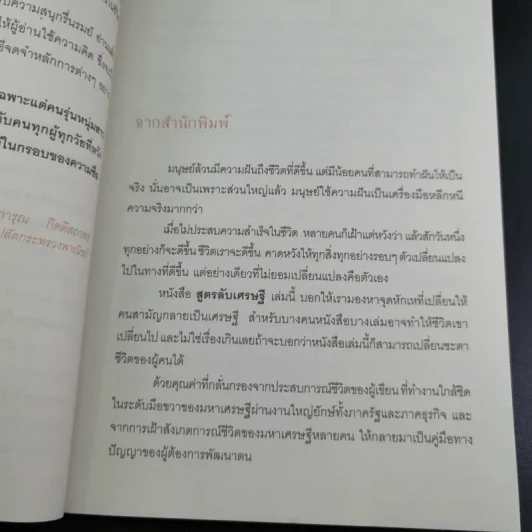 บความสนุกรื่นรมย์
ให้ผู้อ่านใช้ความคิด
จดจำหลักการต่างๆ
ฉพาะแต่คนรุ่นหนุ่ม
ับคนทุกผู้ทุกวัยที่
นในกรอบของความ
การุณ กิตติสถาพร
ปลัดกระทรวงพาณิชย์
จากสำนักพิมพ์
มนุษย์ล้วนมีความฝันถึงชีวิตที่ดีขึ้น แต่มีน้อยคนที่สามารถทำฝันให้เป็น
จริง นั่นอาจเป็นเพราะส่วนใหญ่แล้ว มนุษย์ใช้ความฝันเป็นเครื่องมือหลีกหนี
ความจริงมากกว่า
เมื่อไม่ประสบความสำเร็จในชีวิต หลายคนก็เฝ้าแต่หวังว่า แล้วสักวันหนึ่ง
ทุกอย่างก็จะดีขึ้น ชีวิตเราจะดีขึ้น คาดหวังให้ทุกสิ่งทุกอย่างรอบๆ ตัวเปลี่ยนแปลง
ไปในทางที่ดีขึ้น แต่อย่างเดียวที่ไม่ยอมเปลี่ยนแปลงคือตัวเอง
หนังสือ สูตรลับเศรษฐี เล่มนี้ บอกให้เรามองหาจุดหักเหที่เปลี่ยนให้
คนสามัญกลายเป็นเศรษฐี สำหรับบางคนหนังสือบางเล่มอาจทำให้ชีวิตเขา
เปลี่ยนไป และไม่ใช่เรื่องเกินเลยถ้าจะบอกว่าหนังสือเล่มนี้ก็สามารถเปลี่ยนชะตา
ชีวิตของผู้คนได้
ด้วยคุณค่าที่กลั่นกรองจากประสบการณ์ชีวิตของผู้เขียน ที่ทำงานใกล้ชิด
ในระดับมือขวาของมหาเศรษฐีผ่านงานใหญ่ยักษ์ทั้งภาครัฐและภาคธุรกิจ และ
จากการเฝ้าสังเกตการณ์ชีวิตของมหาเศรษฐีหลายคน ให้กลายมาเป็นคู่มือทาง
ปัญญาของผู้ต้องการพัฒนาตน